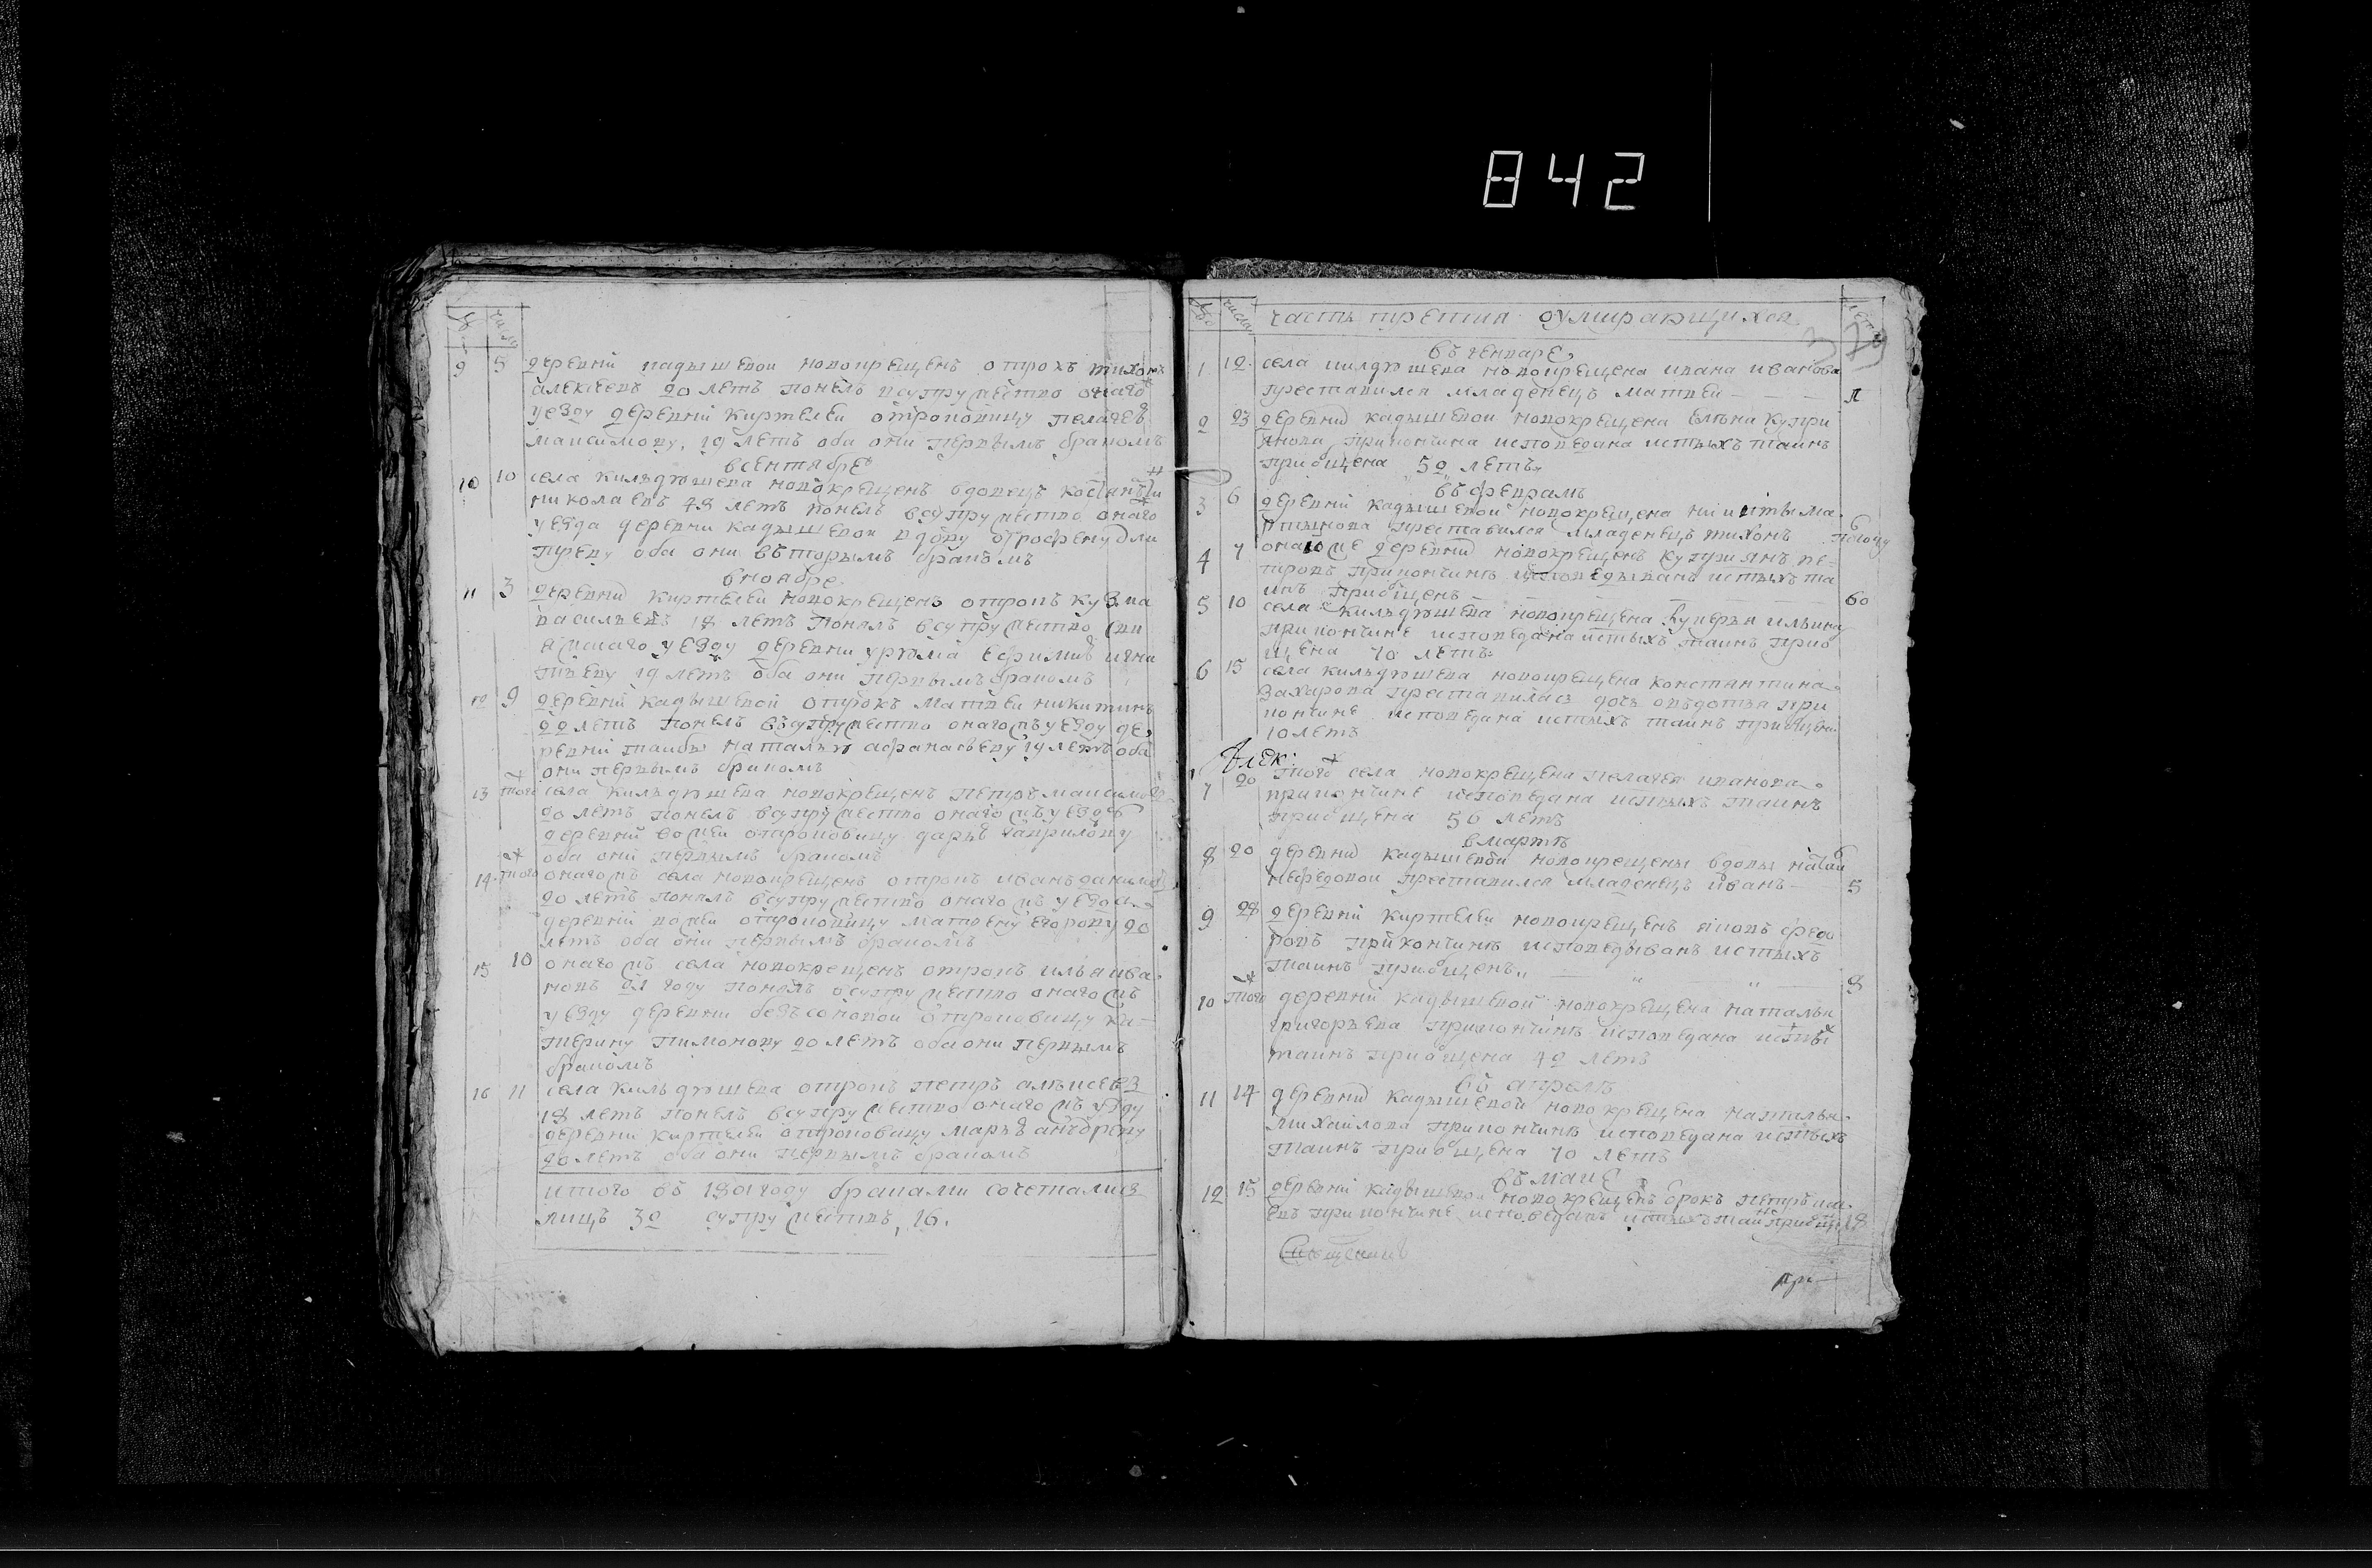 842
№ числа
9 5 деревни кадышевой новокрещенъ отрокъ тихонъ
алексеевъ 20 летъ понелъ всупружество онаго
уезду деревни киртелеи отроковицу пелагею
максимову, 19 летъ оба они первымъ бракомъ
всентябре
10 10 села кильдюшева новокрещенъ вдовецъ
николаевъ 48 летъ понелъ всупружество онаго
уезда деревни кадышевои вдову
оба они въторымъ бракомъ
вноябре
11 3 деревни киртелеи новокрещенъ отрокъ кузма
васильевъ 18 летъ понялъ всупружество сви
яжскаго уезду деревни урюма ефимию игна
тьеву 19 летъ оба они первымъ бракомъ
12 9 деревни кадышевой отрокъ матвеи никитинъ
22 летъ понелъ всупружество онагожъ уезду де
ревни таибы наталью афанасьеву 19 летъ оба
они первымъ бракомъ
13 того села кильдюшева новокрещенъ петръ максимовъ
20 летъ понелъ всупружество онагожъ уезду
деревни отроковицу дарью гаврилову
оба они первымъ бракомъ
14 того онагожъ села новокрещенъ отрокъ иванъ данилов
20 летъ понялъ всупружество онагожъ уезда
деревни отроковицу матрену егорову 20
летъ оба они первымъ бракомъ
15 10 онагожъ села новокрещенъ отрокъ илья ива
новъ 21 году понялъ всупружество онагожъ
уезду деревни безъсоновои отроковицу ка
терину тимонову 20 летъ оба они первымъ
бракомъ
16 11 села кильдюшева отрокъ петръ алексеевъ
18 летъ понелъ всупружество онагожъ уезду
деревни киртелеи отроковицу марью андрееву
20 летъ оба они первымъ бракомъ
итого въ 1801 году браками сочетались
лицъ 32 супружествъ, 16.
№ числа часть третия оумирающихся лета
379
въ генваре
1 12 села килдюшева новокрещена ивана иванова
преставился младенецъ матвеи
2 23 деревни кадышевои новокрещена елена купри
янова прикончина исповедана истыхъ таинъ
приобщена 52 летъ
въ феврале
3 6 деревни кадышевой новокрещена никиты ма
ртынова преставился младенецъ тихонъ
4 7 онаго же деревни новокрещенъ куприянъ пе
тровъ прикончине исповедыванъ истыхъ та
инъ приобщенъ 60
5 10 села кильдюшева новокрещена ильина
прикончине исповедана истыхъ таинъ прио
щена 70 летъ
6 15 села кильдюшева новокрещена константина
захарова преставилась дочь авъдотья при
кончине исповедана истыхъ таинъ приобщена
10 летъ
Алек:
7 20 того села новокрещена пелагея иванова
прикончине исповедана истыхъ таинъ
приобщена 56 летъ
вмарте
8 20 деревни кадышевои новокрещены вдовы
нефедовои преставился младенецъ иванъ 5
9 28 деревни киртелеи новокрещенъ яковъ федо
ровъ прикончине исповедыванъ истыхъ
таинъ приобщенъ 8
10 того деревни кадышевой новокрещена наталья
григорьева прикончине исповедана истых
таинъ приобщена 42 летъ
въ апреле
11 14 деревни кадышевои новокрещена наталья
михайлова прикончине исповедана истыхъ
таинъ приобщена 70 летъ
въ маие
12 15 деревни кадышевои новокрещенъ отрокъ петръ
евъ прикончине исповеданъ истыхъ таин приобщен 18
Священникъ
пре